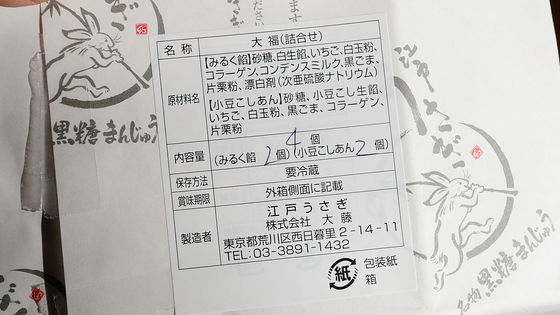 名称 大福(詰合せ)
原材料名
【みるく餡】砂糖、白生餡、いちご、白玉粉、
コラーゲン、コンデンスミルク、黒ごま、
片栗粉、漂白剤(次亜硫酸ナトリウム)
【小豆こしあん】砂糖、小豆こし生餡、
いちご、白玉粉、黒ごま、コラーゲン、
片栗粉
内容量 4個
(みるく餡 2個)(小豆こしあん 2個)
保存方法 要冷蔵
賞味期限 外箱側面に記載
製造者
江戸うさぎ
株式会社 大藤
東京都荒川区西日暮里2-14-11
TEL:03-3891-1432
紙 包装紙
箱
黒糖まんじゅう
江戸うさぎ
名物 黒糖まんじゅう